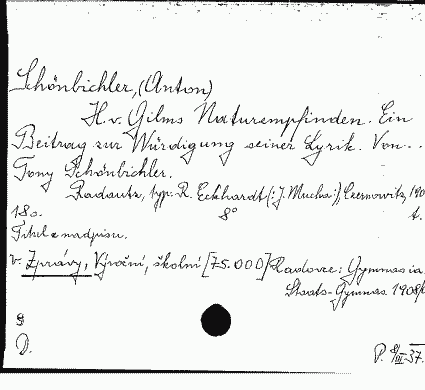 Schönbichler, (Anton)
H. v. Gilms Naturempfinden. Ein
Beitrag zur Würdigung seiner Lyrik. Von...
Tony Schönbichler.
Radautz, typ: R. Eckhardt (: J. Mucha:), Czernowitz, 190
18 s. 8° t.
Titul z nadpisu.
v. Zprávy, Výroční, školní [75.000] Radovce: Gymnasia.
Staats-Gymnas. 1908/
D. P. 8/III-37.